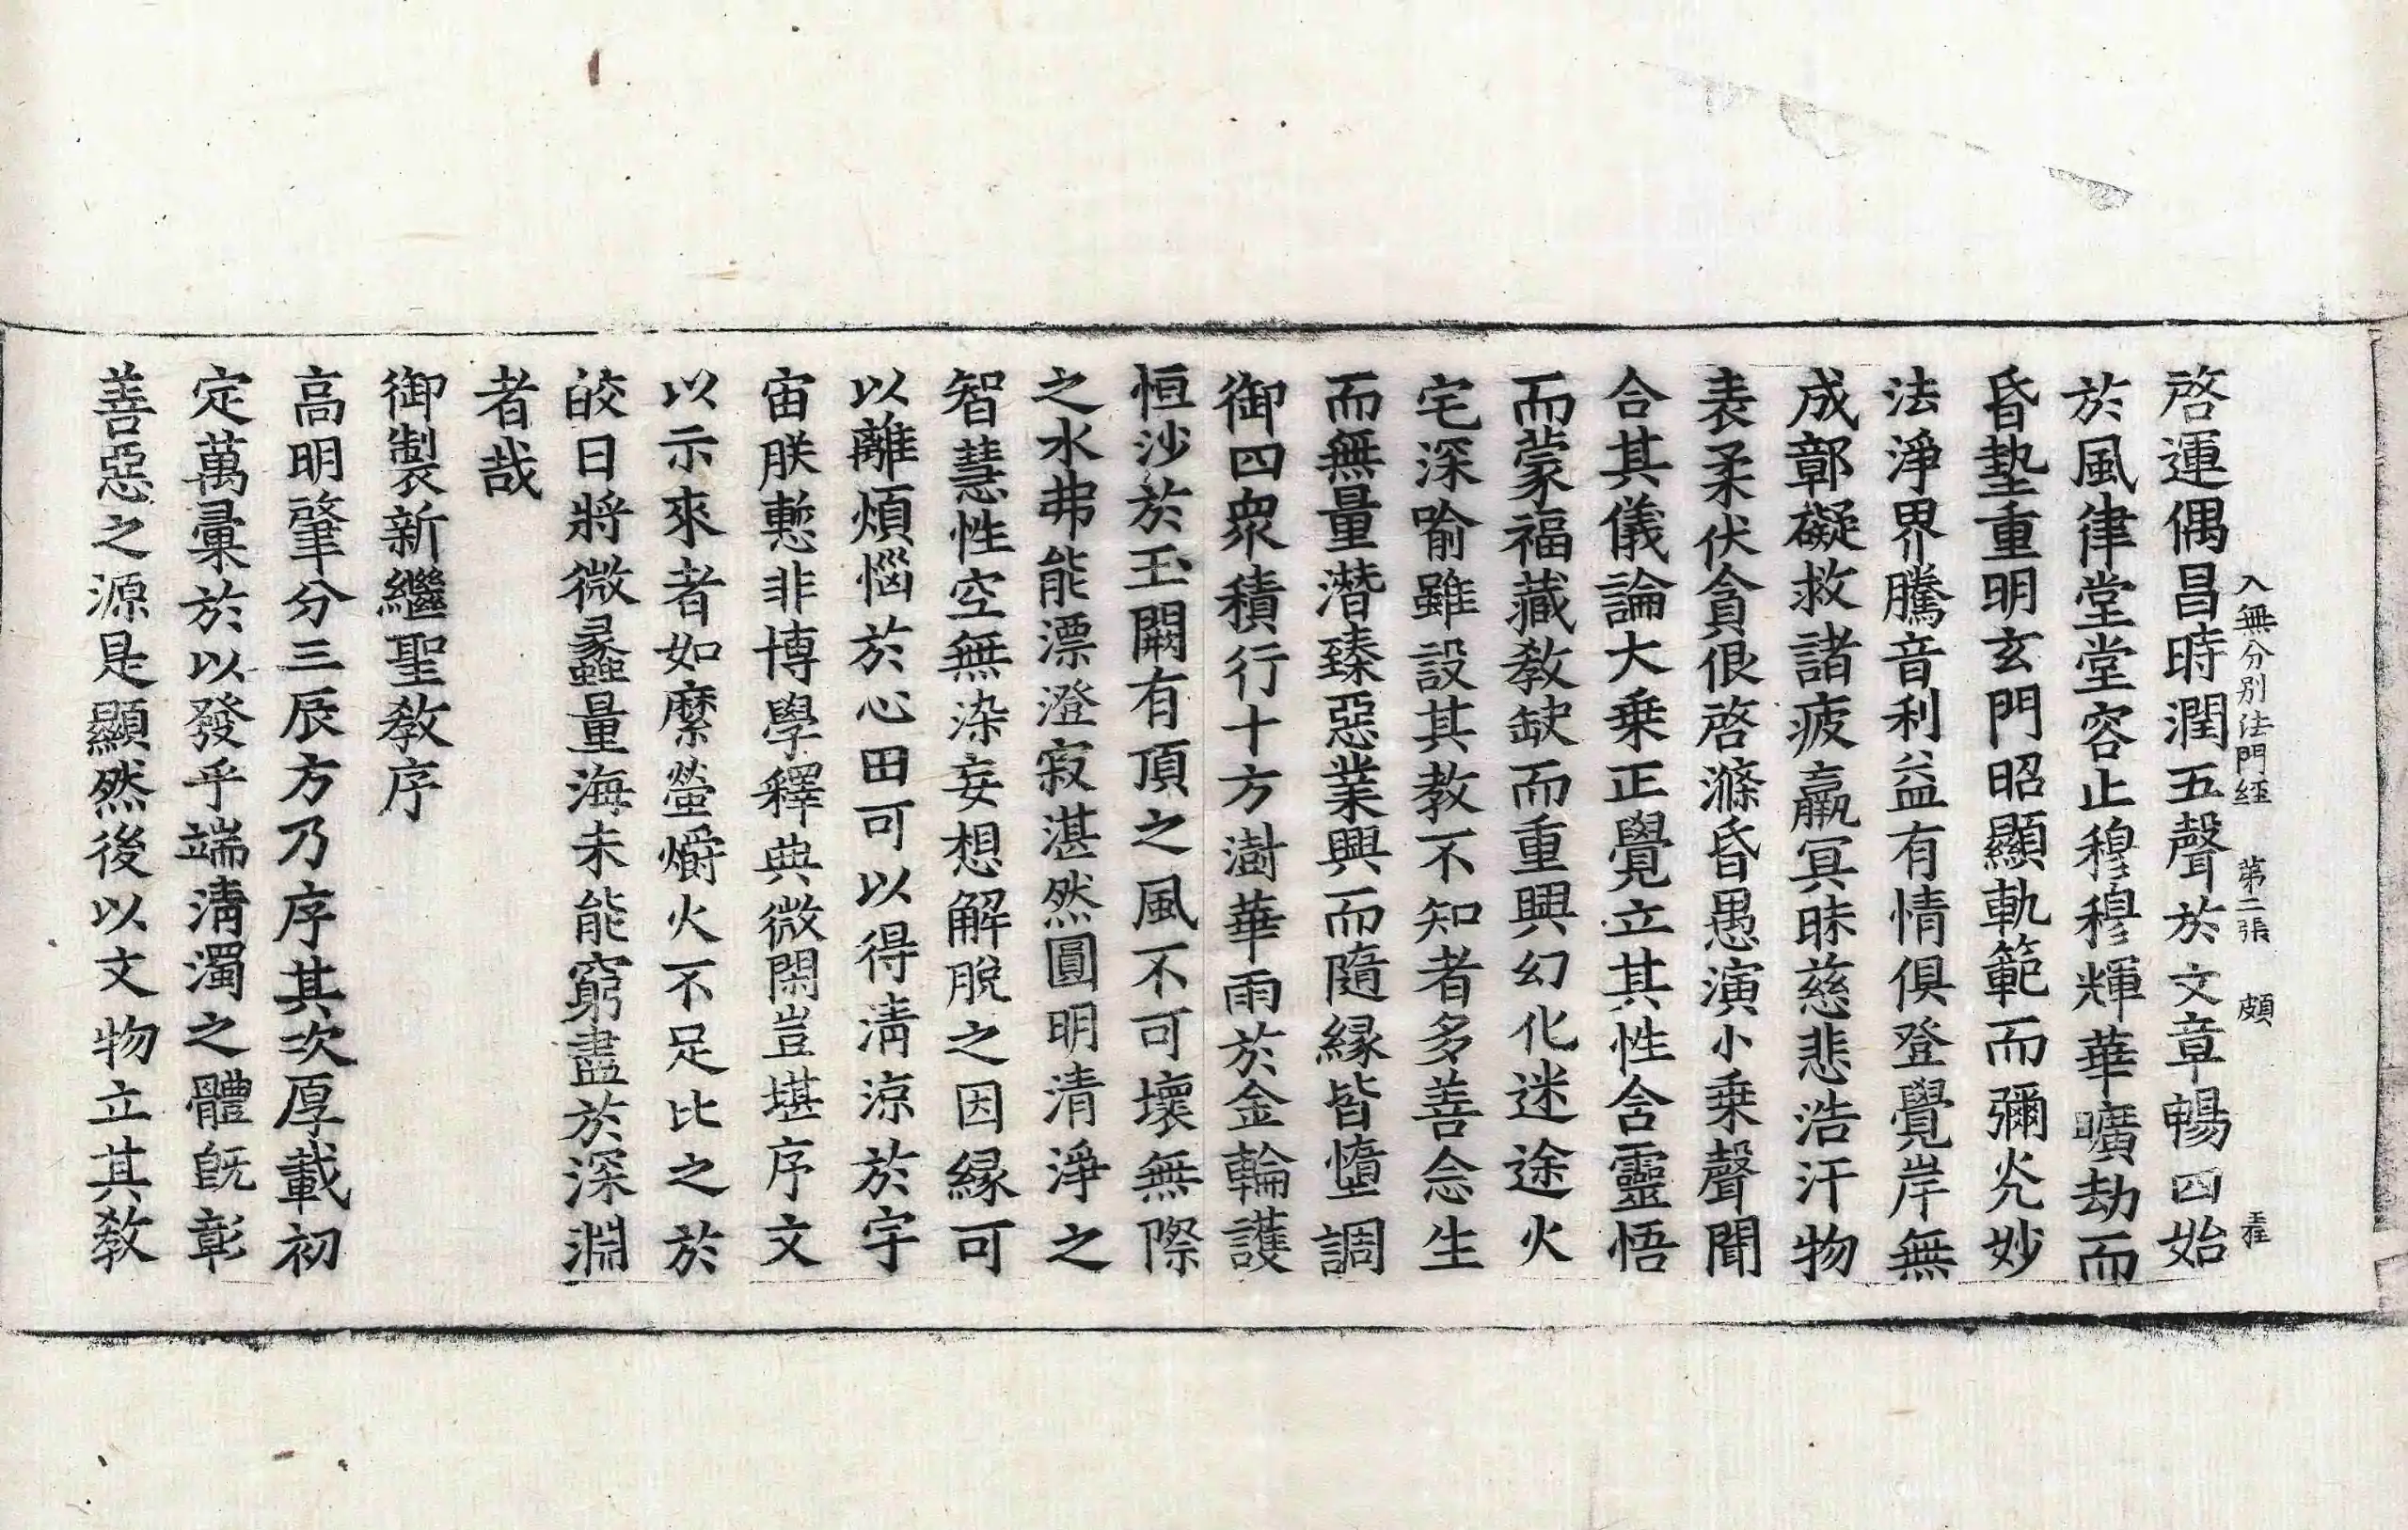 入無分別法門經 第二張 頗
啓運偶昌時潤五聲於文章暢四始
於風律堂堂容止穆穆輝華曠劫而
昏墊重明玄門昭顯軌範而彌光妙
法淨界騰音利益有情俱登覺岸無
成鄣礙救諸疲羸冥昧慈悲浩汗物
表柔伏貪佷啓滌昏愚演小乗聲聞
合其儀論大乗正覺立其性含靈悟
而蒙福藏教缺而重興幻化迷途火
宅深喻雖設其教不知者多善念生
而無量潛臻惡業興而隨緣皆墮調
御四衆積行十方澍華雨於金輪護
恒沙於玉闕有頂之風不可壞無際
之水弗能漂澄寂湛然圓明清淨之
智慧性空無染妄想解脫之因緣可
以離煩惱於心田可以得清涼於宇
宙朕慙非博學釋典微閑豈堪序文
以示來者如縻螢爝火不足比之於
皎日將微蠡量海未能窮盡於深淵
者哉
御製新繼聖教序
高明肇分三辰方乃序其次厚載初
定萬彙於以發乎端清濁之體旣彰
善惡之源是顯然後以文物立其教